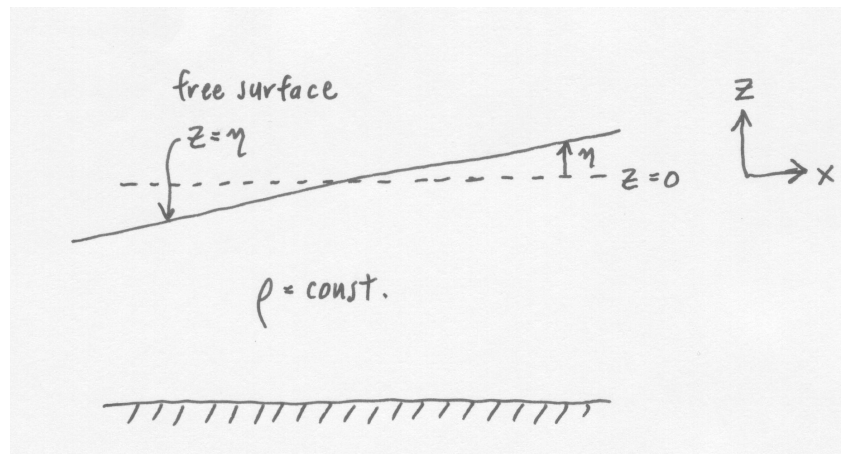 free surface
z = η
η
z = 0
z
x
ρ = const.